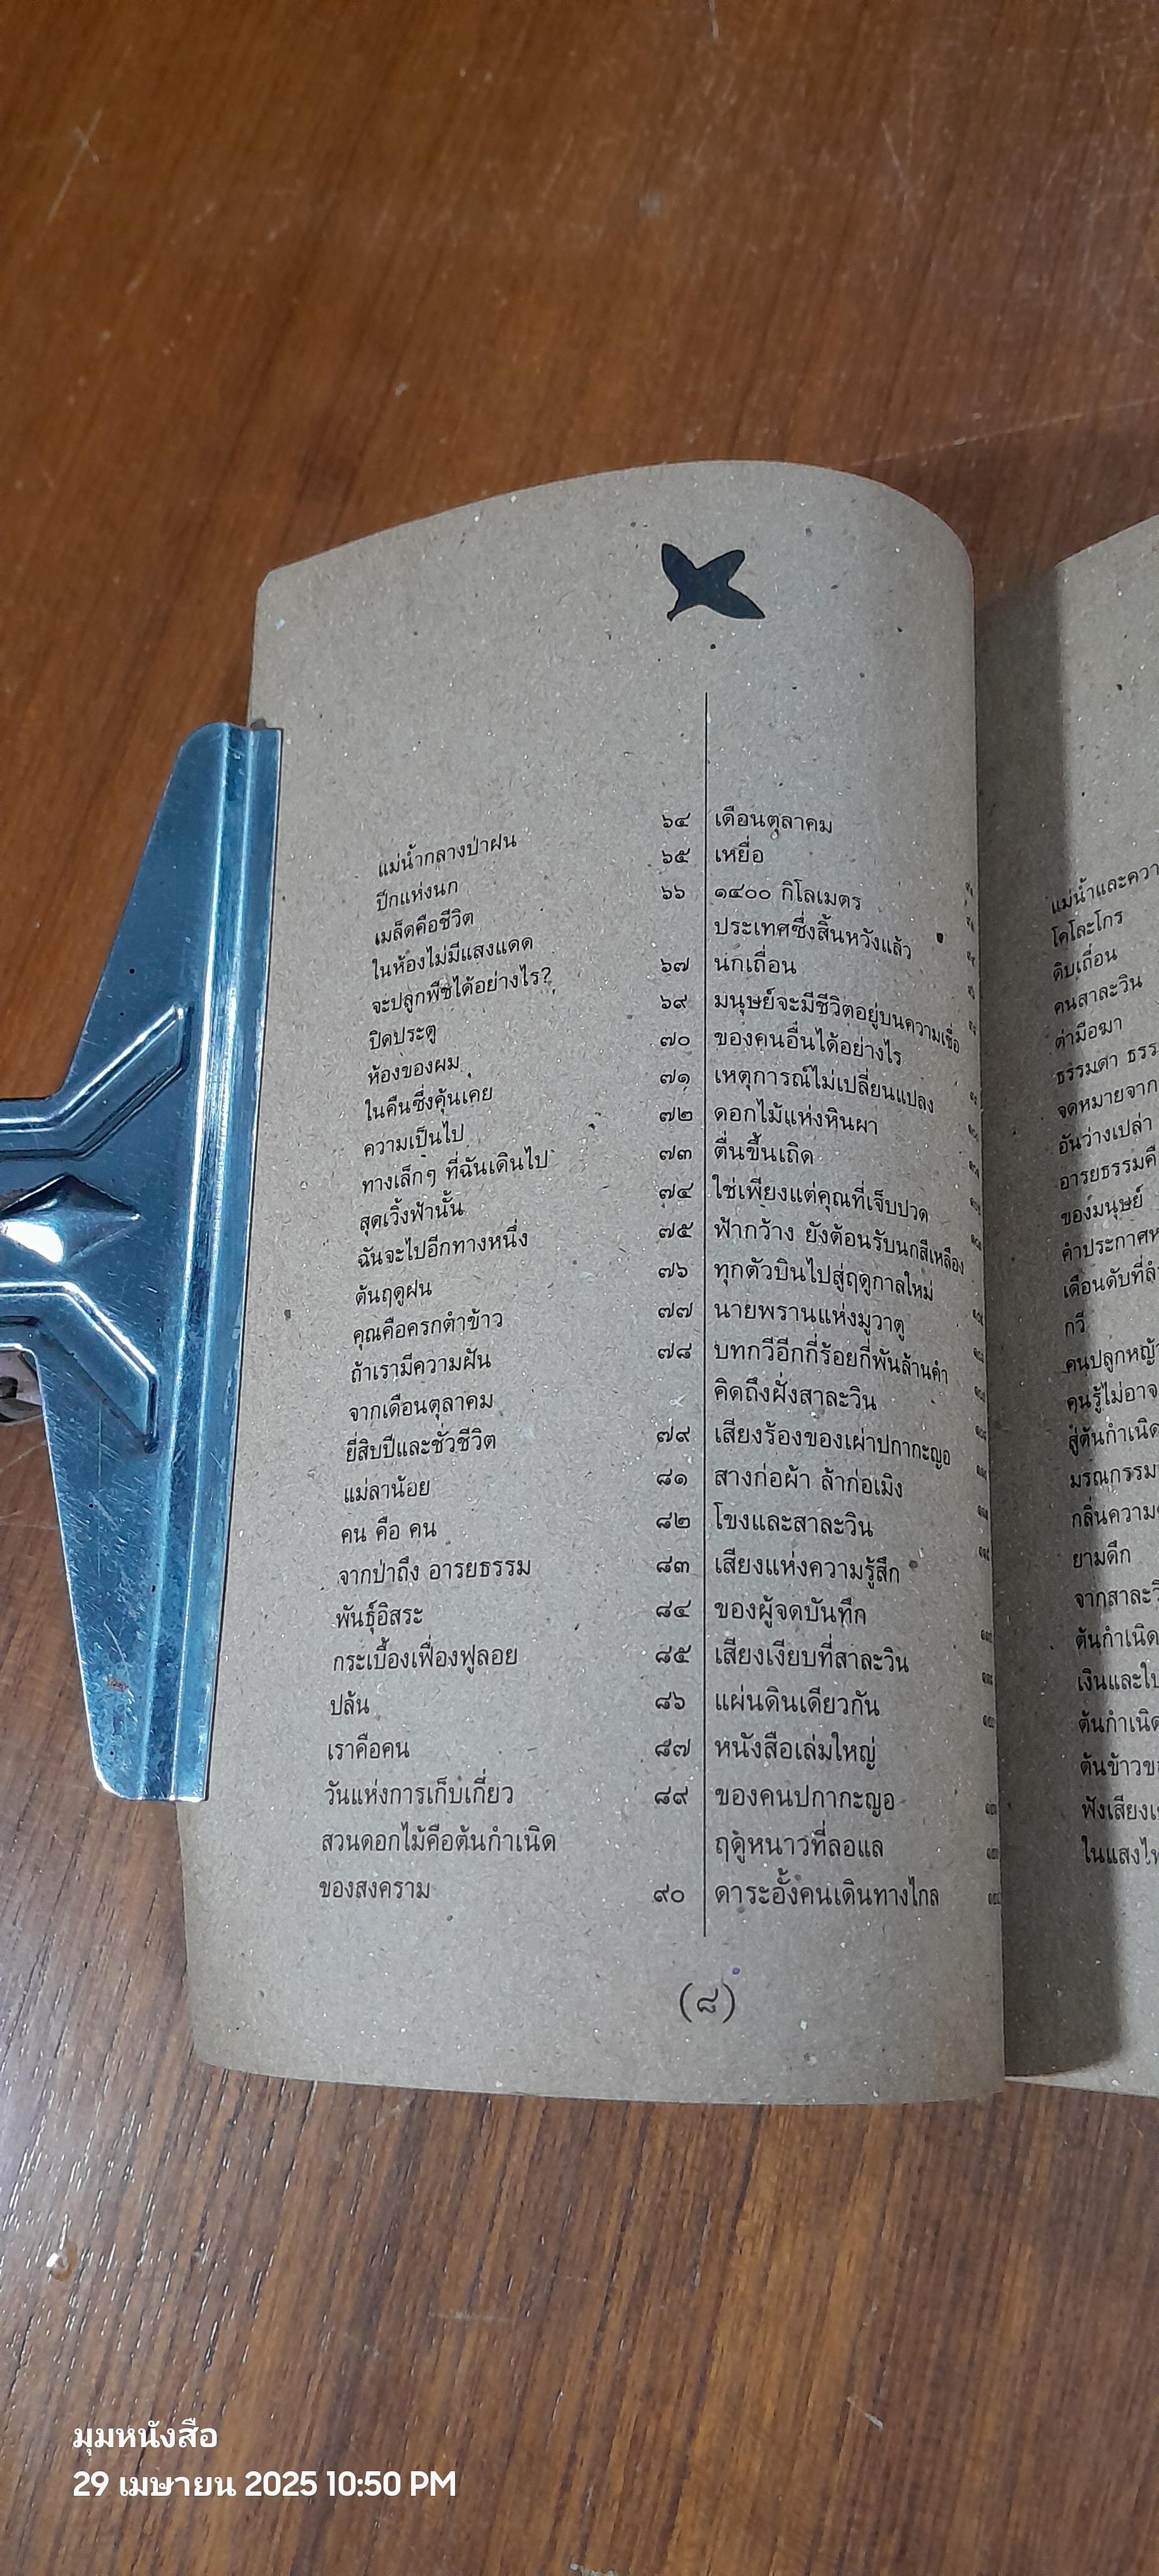 แม่น้ำกลางป่าฝน ๖๔
ปีกแห่งนก ๖๕
เมล็ดคือชีวิต ๖๖
ในห้องไม่มีแสงแดด
จะปลูกพืชได้อย่างไร? ๖๗
ปิดประตู ๖๙
ห้องของผม ๗๐
ในคืนซึ่งคุ้นเคย ๗๑
ความเป็นไป ๗๒
ทางเล็กๆ ที่ฉันเดินไป ๗๓
สุดเวิ้งฟ้านั้น ๗๔
ฉันจะไปอีกทางหนึ่ง ๗๕
ต้นฤดูฝน ๗๖
คุณคือครกตำข้าว ๗๗
ถ้าเรามีความฝัน ๗๘
จากเดือนตุลาคม
ยี่สิบปีและชั่วชีวิต ๗๙
แม่ลาน้อย ๘๑
คน คือ คน ๘๒
จากป่าถึง อารยธรรม ๘๓
พันธุ์อิสระ ๘๔
กระเบื้องเฟื่องฟูลอย ๘๕
ปล้น ๘๖
เราคือคน ๘๗
วันแห่งการเก็บเกี่ยว ๘๙
สวนดอกไม้คือต้นกำเนิด
ของสงคราม ๙๐
เดือนตุลาคม
เหยื่อ
๑๔๐๐ กิโลเมตร
ประเทศซึ่งสิ้นหวังแล้ว
นกเถื่อน
มนุษย์จะมีชีวิตอยู่บนความเชื่อ
ของคนอื่นได้อย่างไร
เหตุการณ์ไม่เปลี่ยนแปลง
ดอกไม้แห่งหินผา
ตื่นขึ้นเถิด
ใช่เพียงแต่คุณที่เจ็บปวด
ฟ้ากว้าง ยังต้อนรับนกสีเหลือง
ทุกตัวบินไปสู่ฤดูกาลใหม่
นายพรานแห่งมูวาดู
บทกวีอีกกี่ร้อยกี่พันล้านคำ
คิดถึงฝั่งสาละวิน
เสียงร้องของเผ่าปกากะญอ
สางก่อผ้า ล้าก่อเมิง
โขงและสาละวิน
เสียงแห่งความรู้สึก
ของผู้จดบันทึก
เสียงเงียบที่สาละวิน
แผ่นดินเดียวกัน
หนังสือเล่มใหญ่
ของคนปกากะญอ
ฤดูหนาวที่ลอแล
ดาระอั้งคนเดินทางไกล
(๘)
แม่น้ำและ
โคโละโกร
ดิบเถื่อน
คนสาละวิน
ธรรมดา
จดหมายจาก
อันว่างเปล่า
ของมนุษย์
กวี
สู่ต้นกำเนิด
ยามดึก
ต้นกำเนิด
ต้นกำเนิด
มุมหนังสือ
29 เมษายน 2025 10:50 PM